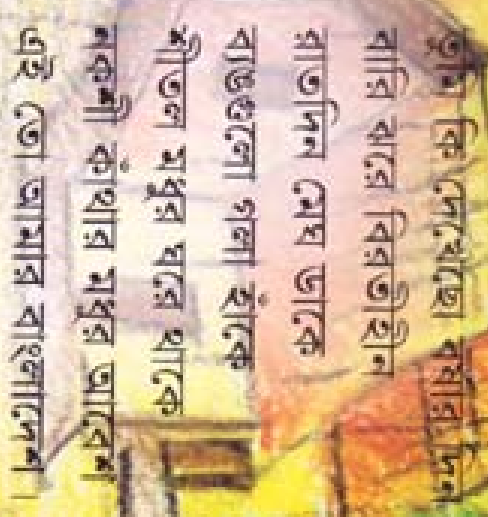 তুমি কি দেখেছো বর্ষার দিন
বারি ঝরে বিরতীহিন
রাতদিন মেঘ ডাকে
ব্যঙগুলো গলা হাঁকে
শীতল মধুর ঘরে থাকে
নকশী কাঁথার মধুর আবেশ
এই তো আমার বাংলাদেশ।